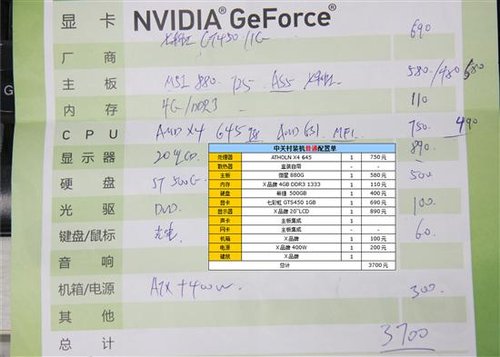 显 卡 NVIDIA® GeForce®
GT450/1G 690
厂 商
主 板 MSI 880 580/480 680
内 存 4G/DDR3 110
CPU AMD X4 645 AMD 631 750 490
显示器 20寸LCD 890
硬 盘 ST 500G 500
光 驱 DVD 100
键盘/鼠标 光电 60
音 响
机箱/电源 ATX +400W 300
其 他
总 计 3700
中关村装机普通配置单
处理器 ATHOLN X4 645 1 750元
散热器 盒装自带 -
主板 微星 880G 1 580元
内存 X品牌 4GB DDR3 1333 1 110元
硬盘 希捷 500GB 1 400元
显卡 七彩虹 GTS450 1GB 1 690元
显示器 X品牌 20"LCD 1 890元
声卡 主板集成 1 -
网卡 主板集成 - -
机箱 X品牌 1 100元
电源 X品牌 400W 1 200元
键鼠 X品牌 1
总计 3700元